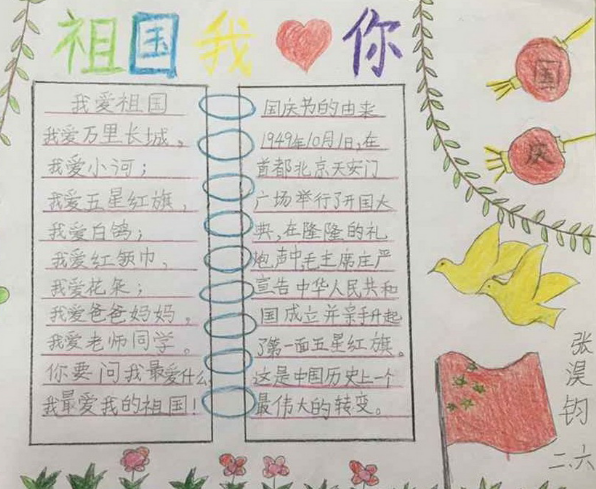 祖国我❤你
我爱祖国
我爱万里长城。
我爱小河；
我爱五星红旗，
我爱白鸽；
我爱红领巾，
我爱花朵；
我爱爸爸妈妈。
我爱老师同学。
你要问我最爱什么
我最爱我的祖国！
国庆节的由来
1949年10月1日,在
首都北京天安门
广场举行了开国大
典,在隆隆的礼
炮声中毛主席庄严
宣告中华人民共和
国成立并亲手升起
了第一面五星红旗。
这是中国历史上一个
最伟大的转变。
国
庆
张淏钧
二.六